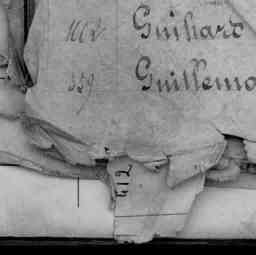 1102 Guihard
359 Guillemo
412